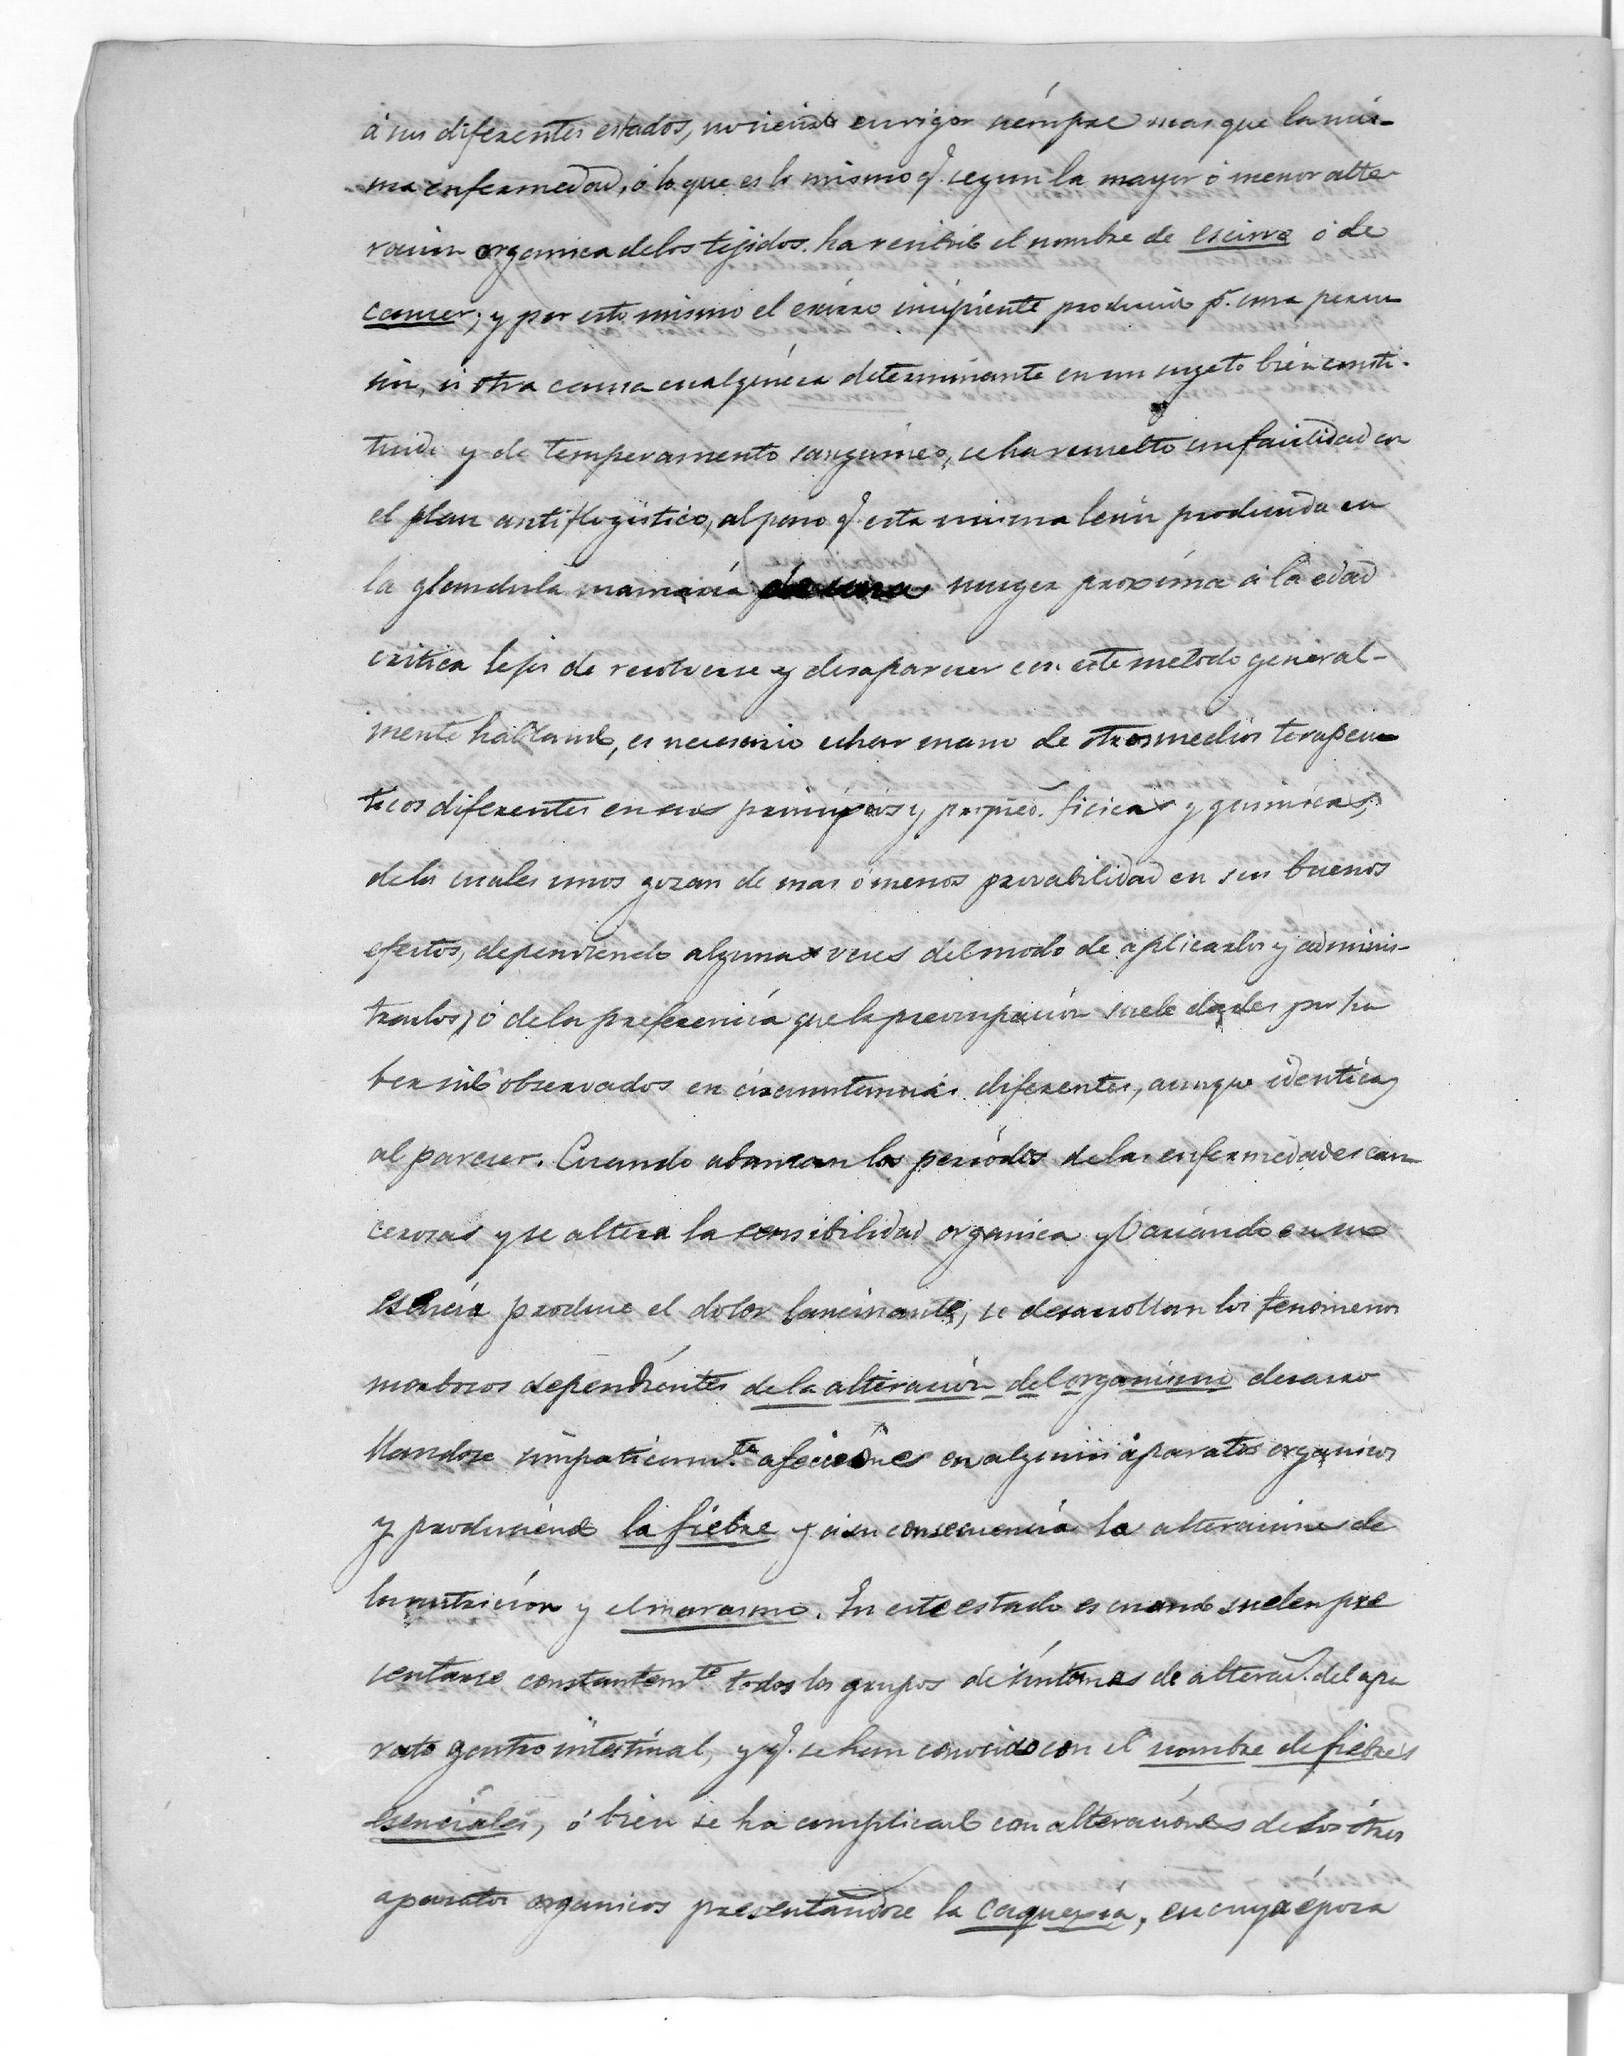 á sus diferentes estados, no siendo en rigor siémpre mas que la mis-
ma enfermedad, ó lo que es lo mismo q.e segun la mayor ó menor alte-
racion organica de los tejidos. ha recibido el nombre de escirro ó de
cancer; y por esto mismo el escirro incipiente producido p.r una percu
sion, ú otra causa cualquiera determinante en un sugeto bién consti-
tuido y de temperamento sanguineo, se ha resuelto con facilidad con
el plan antiflogistico, al paso q.e esta misma lesion producida en
la glandula mamaria de una muger proxima á la edad
critica lejos de resolverse y desaparecer con este metodo general-
mente hablando, es necesario echar mano de otros medios terapeu
ticos diferentes en sus principios y propied. ficicas y quimicas,
de los cuales unos gozan de mas ó menos provabilidad en sus buenos
efectos, dependiendo algunas veces del modo de aplicarlos y adminis-
trarlos, ó de la preferencia que la preocupacion suele darles por ha
ber sido observados en circunstancias diferentes, aunque identicas
al parecer. Cuando abanzan los periódos de las enfermedades can
cerosas y se altera la sensibilidad organica y bariando en su
esencia produce el dolor lancinante, se desarrollan los fenomenos
morbosos dependientes de la alteración del organismo desarro
llandose simpaticam.te afecciones en algunos aparatos organicos
y produciendo la fiebre y á su consecuencia las alteraciones de
la nutrición y el marasmo. En este estado es cuando suelen pre
sentarse constantem.te todos los grupos de síntomas de alterac. del apa
rato gastro intestinal, y q.e se han conocido con el nombre de fiebres
esenciales, ó bién se ha complicado con alteraciónes de los ótros
aparatos organicos presentandose la caquexia, en cuya época